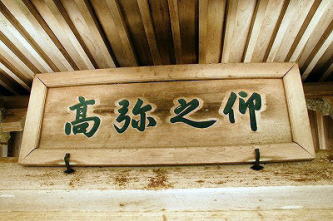 仰之弥高